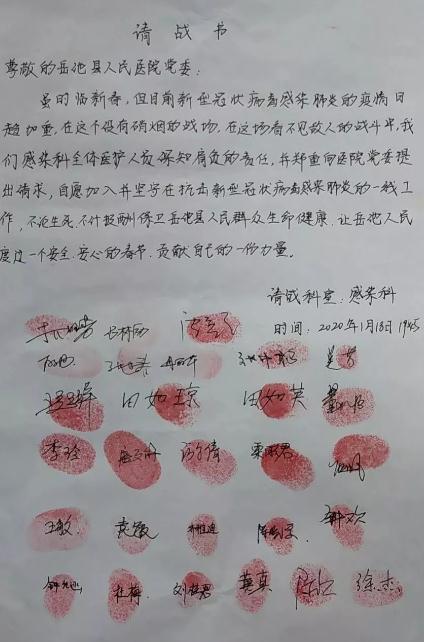 请战书
尊敬的岳池县人民医院党委：
虽时临新春，但目前新型冠状病毒感染肺炎的疫情日
趋加重。在这个没有硝烟的战场，在这场看不见敌人的战斗中，我
们感染科全体医护人员深知肩负的责任，并郑重向医院党委提
出请求，自愿加入并坚守在抗击新型冠状病毒感染肺炎的一线工
作，不论生死，不计报酬，保卫岳池县人民群众生命健康，让岳池人民
度过一个安全、安心的春节，贡献自己的一份力量。
请战科室：感染科
时间：2020年1月18日 19:45
田如琼 田如英
李玲
王敏 袁敏
杜梅 黄真 徐杰